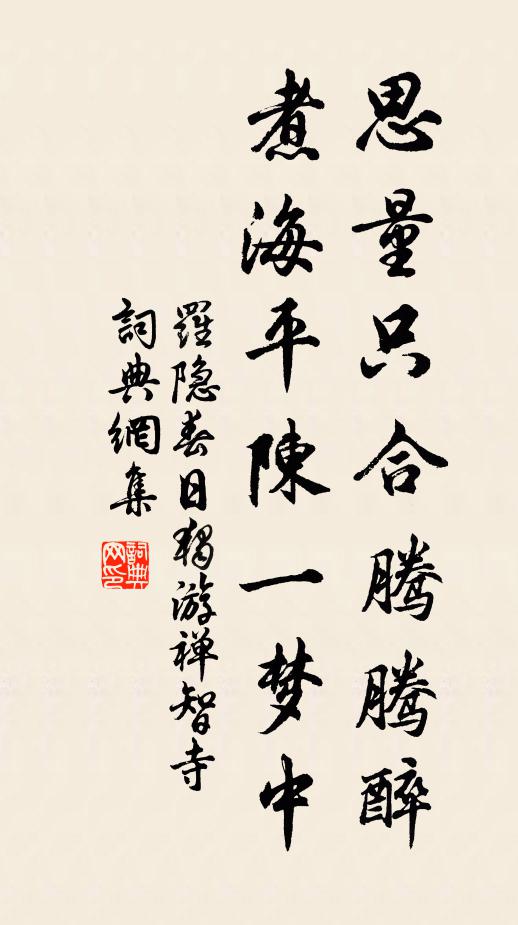 思量只合腾腾醉
煮海平陳一梦中
羅隐春日独游禅智寺
詞典網集
詞典网印